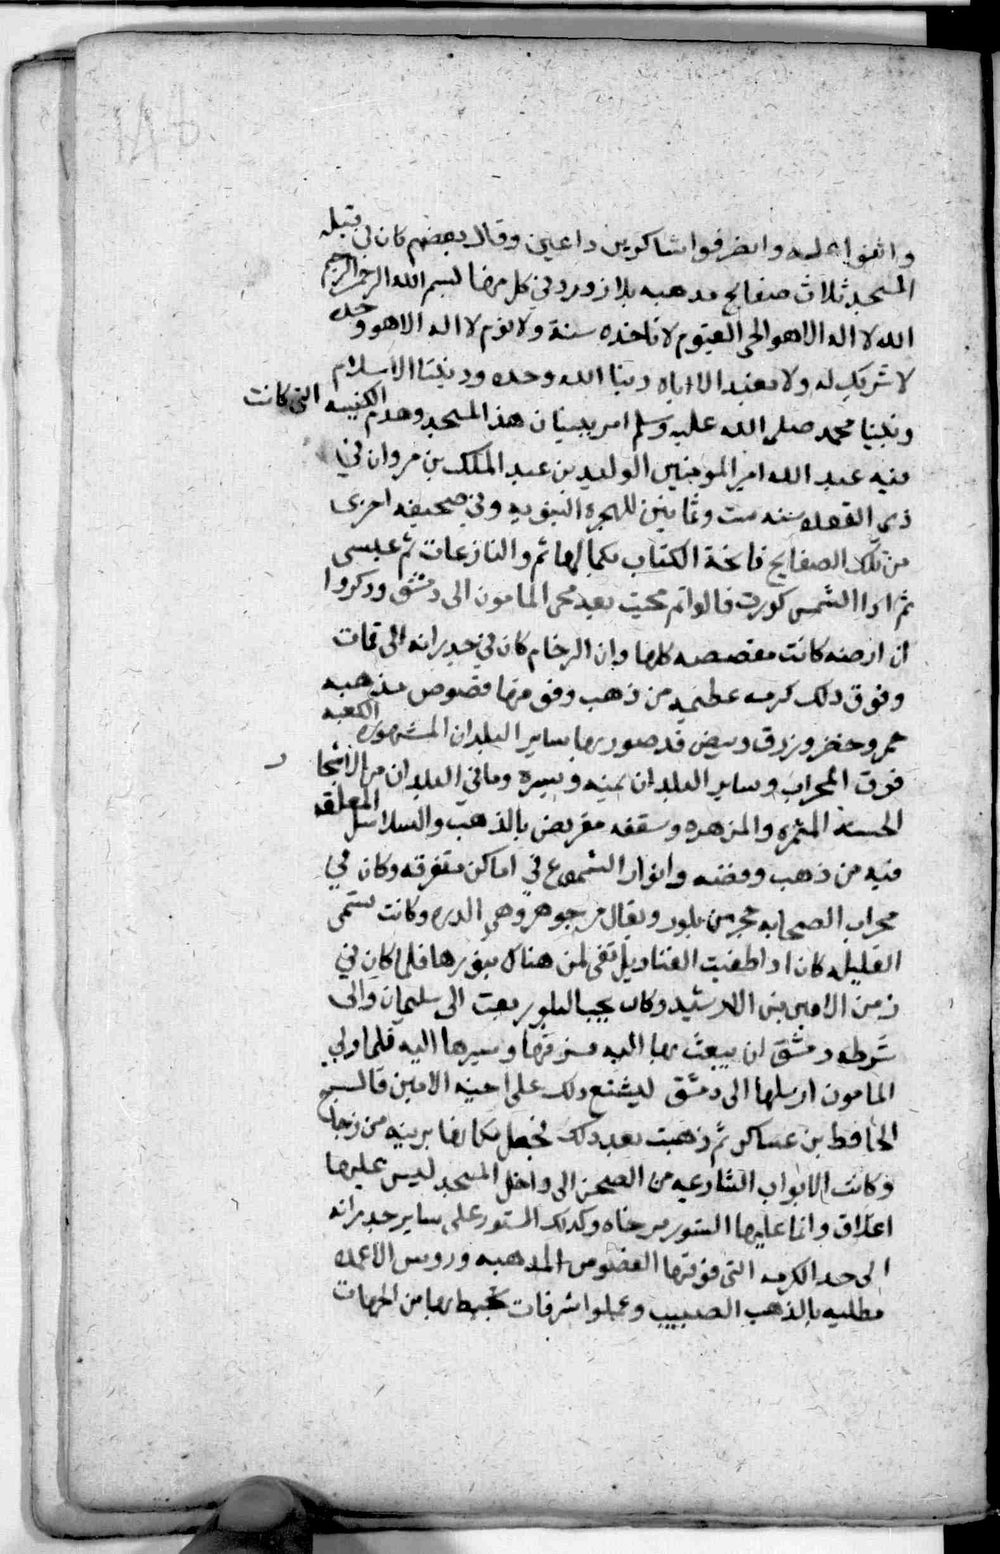 واثنوا عليه وانصرفوا شاكرين داعين وقال بعضهم كان في قبلة
المسجد ثلاث صفايح مدهبه بلازورد في كل منها بسم الله الرحمن الرحيم
الله لا اله الا هو الحي القيوم لا تاخذه سنة ولا نوم لا اله الا هو وحده
لا شريك له ولا نعبد الا اياه ربنا الله وحده وديننا الاسلام
ونبينا محمد صلى الله عليه وسلم امر ببنيان هذا المسجد وهدم الكنيسه التي كانت
فيه عبد الله امير المومنين الوليد بن عبد الملك بن مروان في
ذي القعده سنه ست وثمانين للهجره النبويه وفي صحيفه اخرى
من تلك الصفايح فاتحة الكتاب بكمالها ثم والنازعات ثم عبس
ثم اذا الشمس كورت قالوا ثم محيت بعد مجي المامون الى دمشق وذكروا
ان ارضه كانت مفصصه كلها وان الرخام كان في جدرانه الى قامات
وفوق ذلك كرمه عظيمه من ذهب وفوقها فصوص مذهبه
حمر وخضر وزرق وبيض قد صور بها ساير البلدان المشهوره الكعبه
فوق المحراب وساير البلدان يمنه ويسره وما في البلدان من الاشجار
الحسنه المثمره والمزهره وسقفه مقرنص بالذهب والسلاسل المعلقه
فيه من ذهب وفضه وانوار الشموع في اماكن متفرقه وكان في
محراب الصحابه حجر من بلور ويقال من جوهر وهي الدره وكانت تسمى
القليله كان اذا طفيت القناديل تضي لمن هناك بنورها فلما كان في
زمن الامين بن الرشيد وكان يحب البلور بعث الى سليمان والى
شرطه دمشق ان يبعث بها اليه فسرقها وسيرها اليه فلما ولي
المامون ارسلها الى دمشق ليشنع ذلك على اخيه الامين قال
الحافظ بن عساكر ثم ذهبت بعد ذلك فجعل مكانها برنيه من زجاج
وكانت الابواب الشارعه من الصحن الى داخل المسجد ليس عليها
اغلاق وانما عليها الستور مرخاه وكذلك الستور على ساير جدرانه
الى حد الكرمه التي فوقها الفصوص المذهبه وروس الاعمده
مطليه بالذهب الصبيب وعملوا شرفات تحيط بها من الجهات